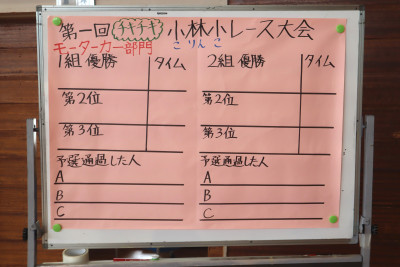 第一回 チキチキ 小林小レース大会
こりんこ
モーターカー部門
1組 優勝 タイム
第2位
第3位
予選通過した人
A
B
C
2組 優勝 タイム
第2位
第3位
予選通過した人
A
B
C